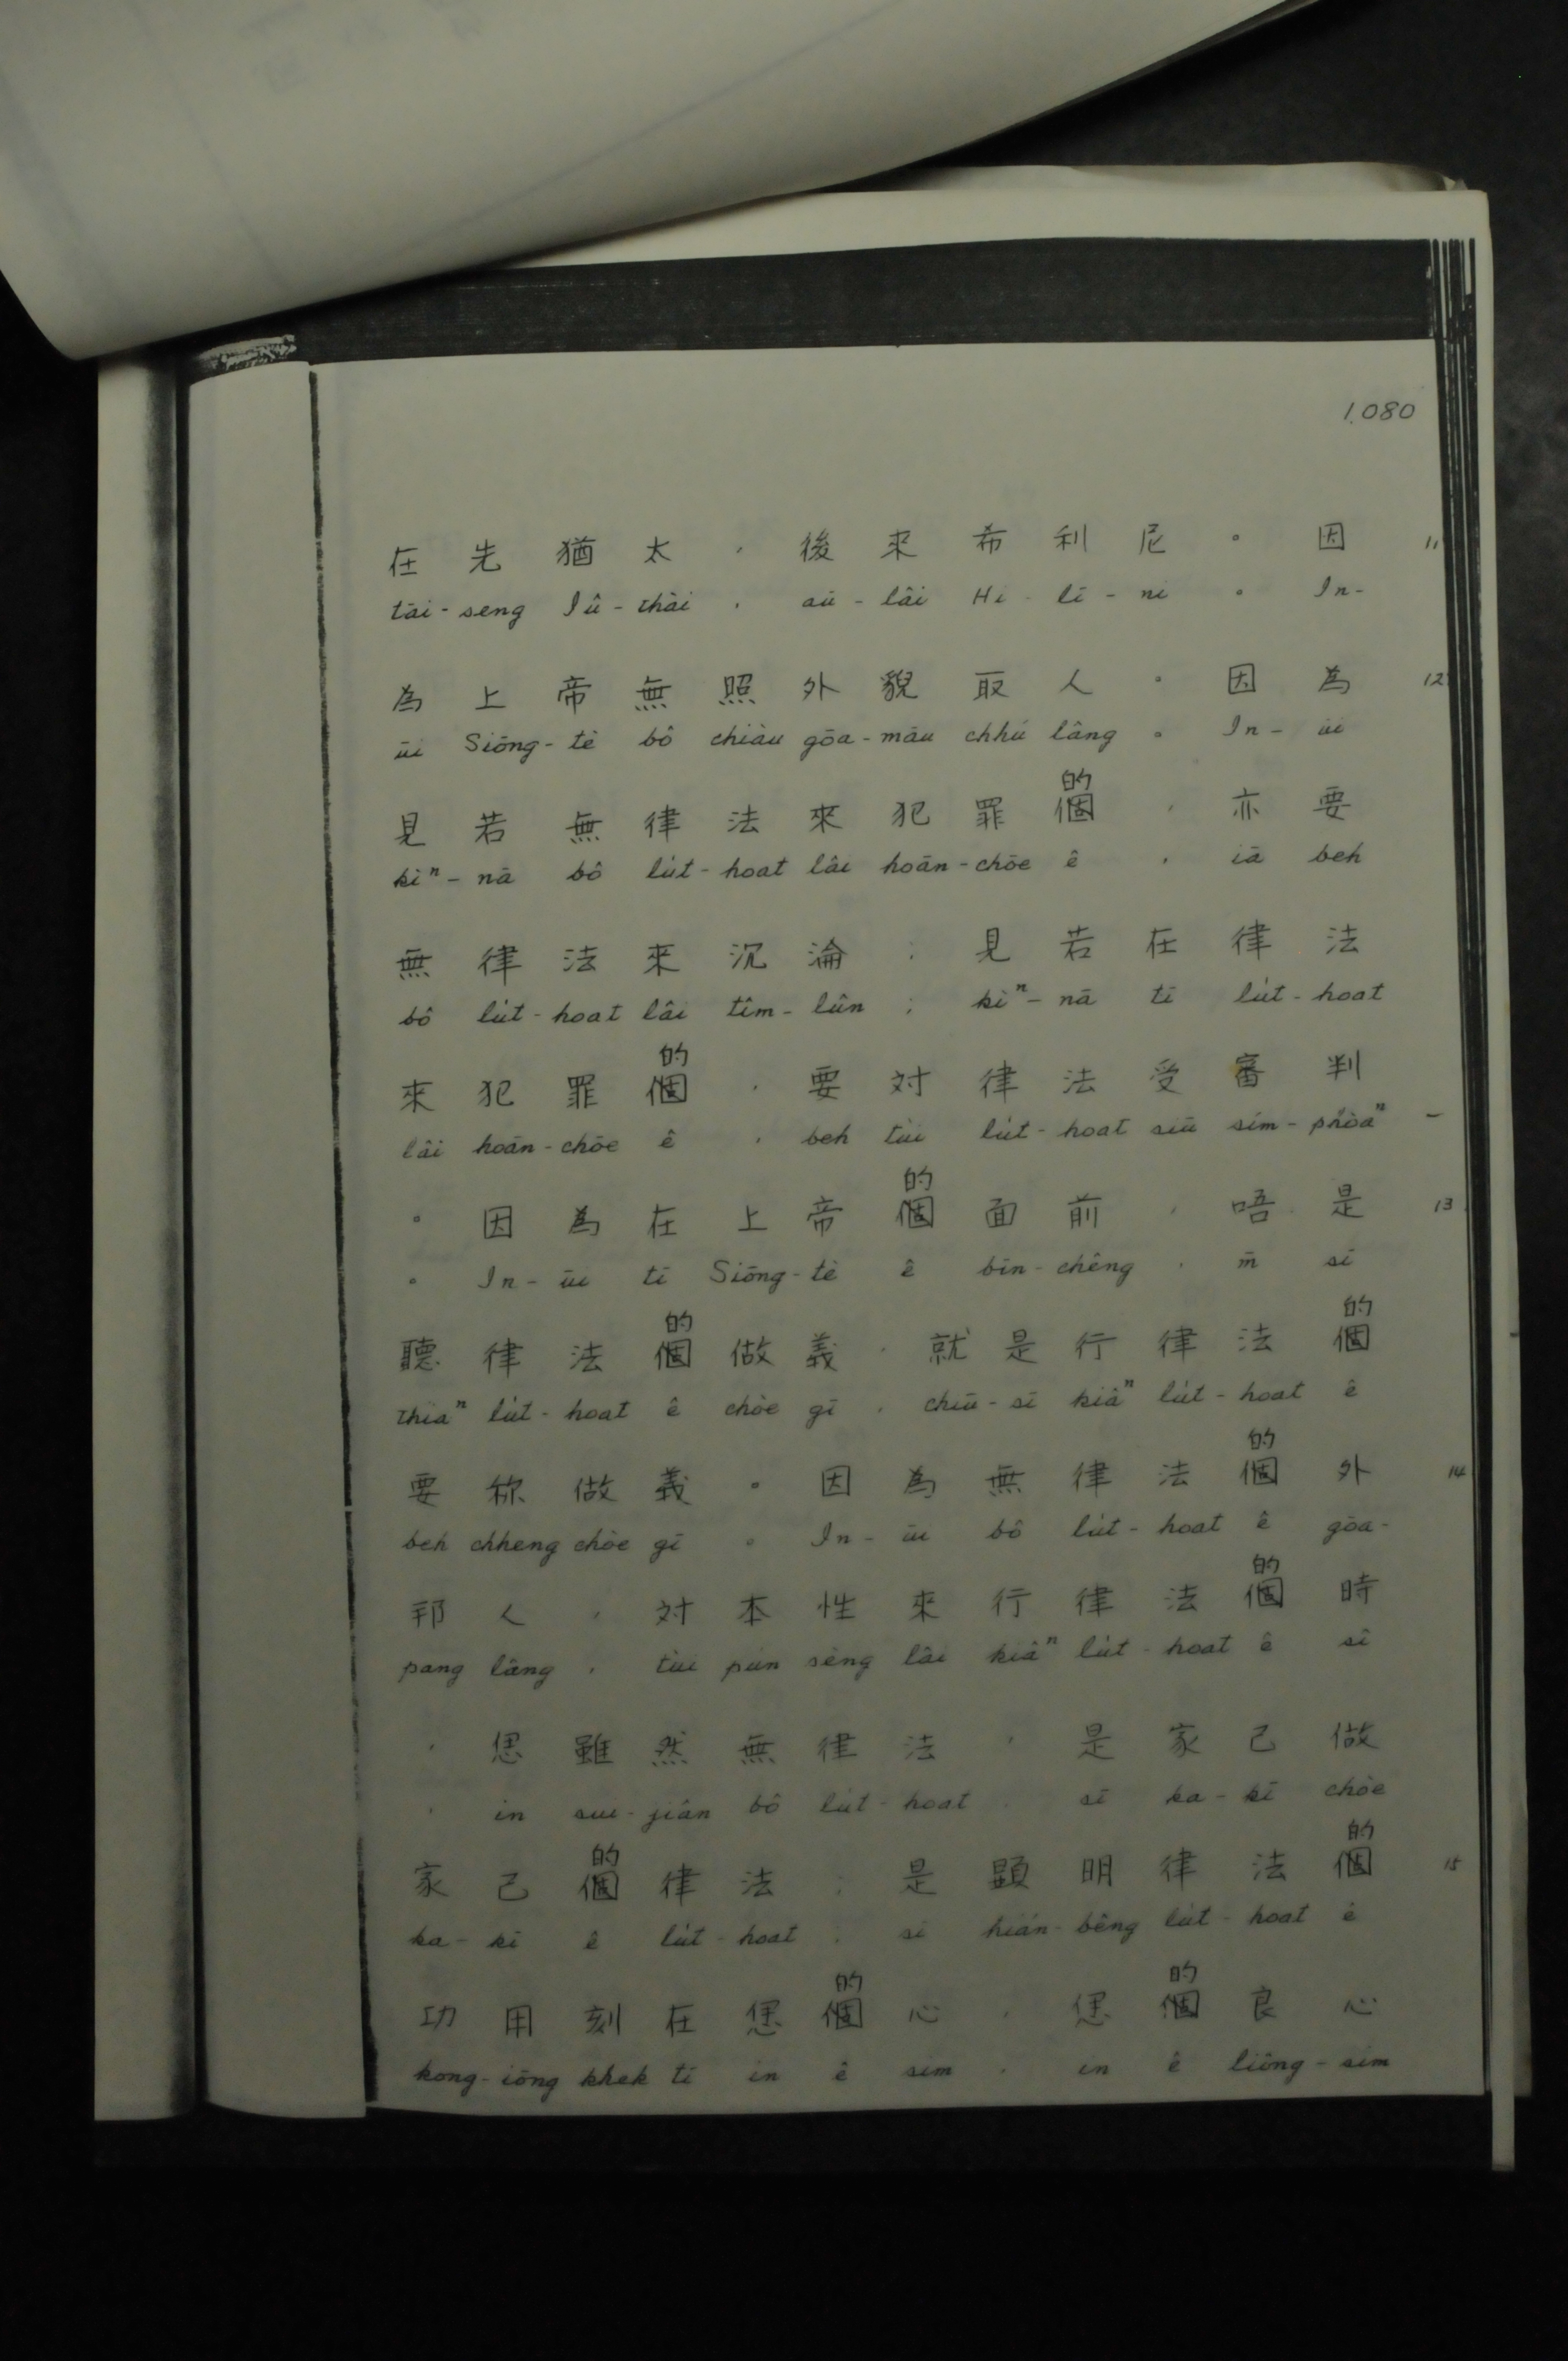 1,080
在先猶太，後來希利尼。因 11
tāi-seng Iû-thài , aū-lâi Hi-lī-nî 。 In-
為上帝無照外貌取人。因為 12
ūi Siōng-tè bô chiàu gōa-māu chhú lâng 。 In-ūi
的
見若無律法來犯罪個，亦要
kìⁿ-nā bô lu̍t-hoat lâi hoān-chōe ê , iā beh
無律法來沉淪；見若在律法
bô lu̍t-hoat lâi tîm-lûn ; kìⁿ-nā tī lu̍t-hoat
的
來犯罪個，要対律法受審判
lâi hoān-chōe ê , beh tùi lu̍t-hoat siū sím-phòaⁿ –
的
。因為在上帝個面前，唔是 13
。 In-ūi tī Siōng-tè ê bīn-chêng , m̄ sī
的 的
聽律法個做義，就是行律法個
thiaⁿ lu̍t-hoat ê chòe gī , chiū-sī kiâⁿ lu̍t-hoat ê
的
要称做義。因為無律法個外 14
beh chheng chòe gī 。 In-ūi bô lu̍t-hoat ê gōa-
的
邦人，対本性來行律法個時
pang lâng , tùi pún sèng lâi kiâⁿ lu̍t-hoat ê sî
，㑶雖然無律法，是家己做
, in sui-jiân bô lu̍t-hoat , sī ka-kī chòe
的 的
家己個律法；是顕明律法個 15
ka-kī ê lu̍t-hoat ; sī hián-bêng lu̍t-hoat ê
的 的
功用刻在㑶個心，㑶個良心
kong-iōng khek tī in ê sim , in ê liông-sim